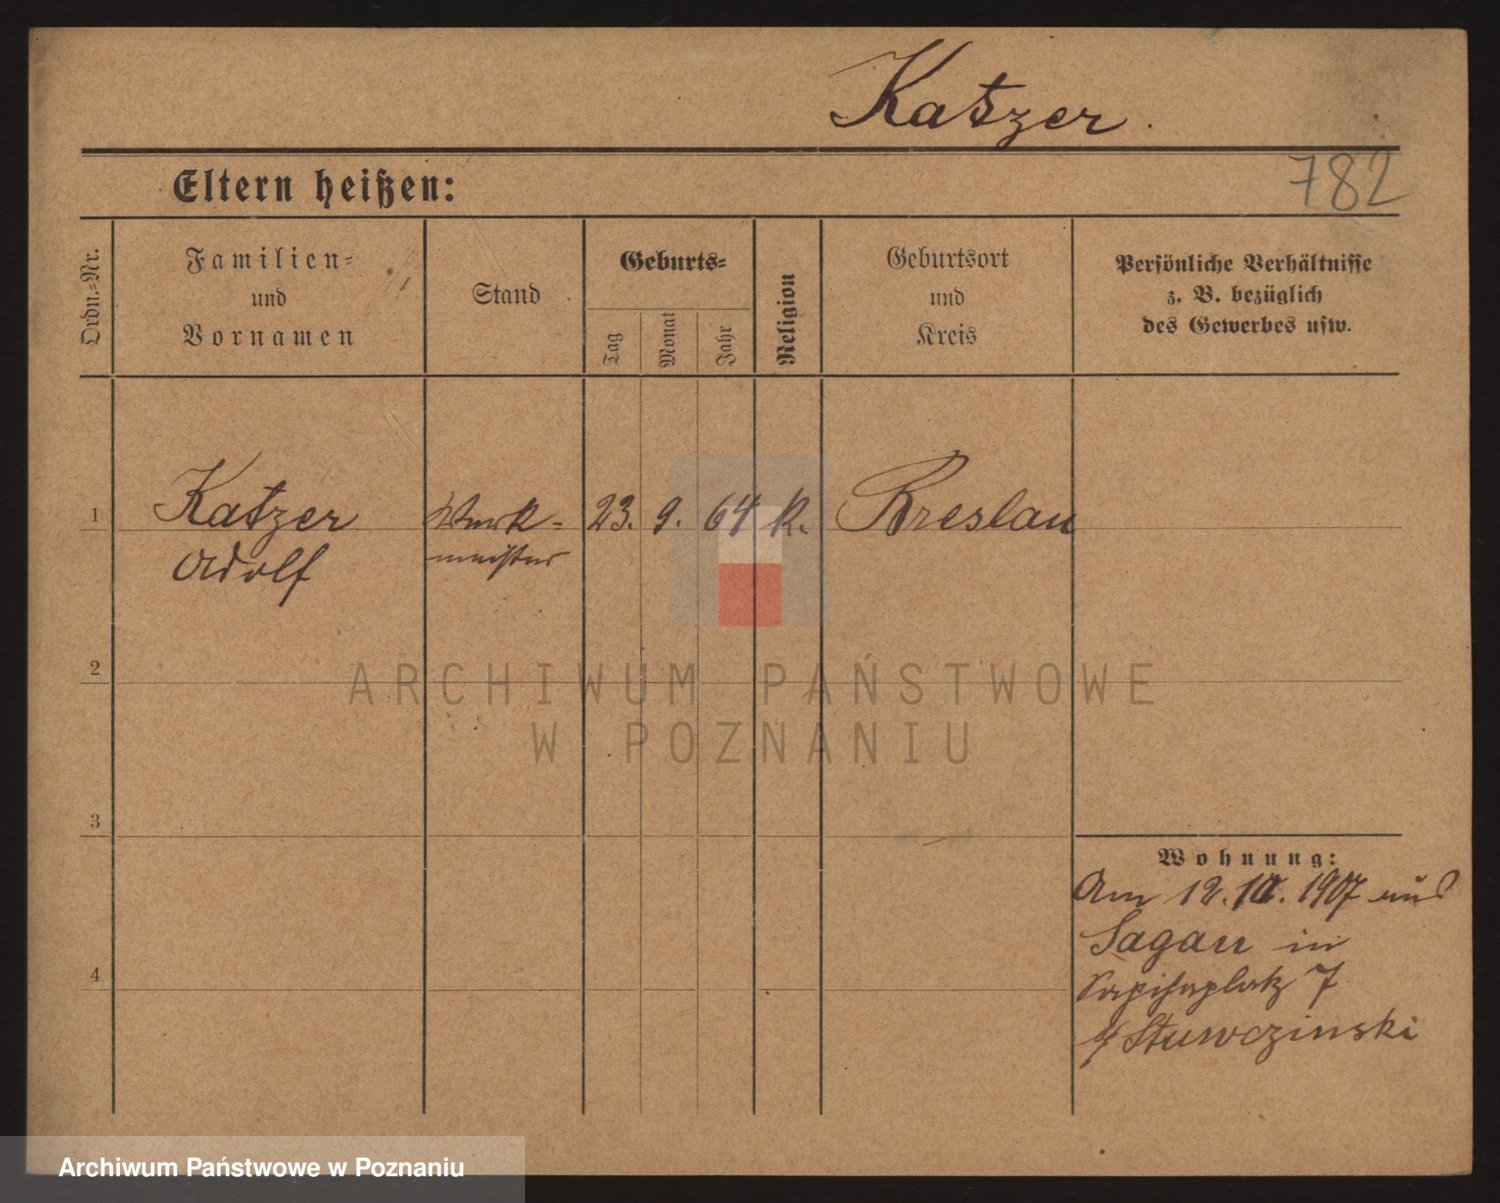 Katzer.
Eltern heißen:
782
Ordn.-Nr.
Familien-
und
Vornamen
Stand
Geburts-
Tag
Monat
Jahr
Religion
Geburtsort
und
Kreis
Persönliche Verhältnisse
z. B. bezüglich
des Gewerbes usw.
1
Katzer
Adolf
Werk-
meister
23. 9. 64
k.
Breslau
2
3
4
Wohnung:
Am 12. 10. 1907 aus
Sagan in
Sapiehaplatz 7
Stuwczinski
ARCHIWUM PAŃSTWOWE
W POZNANIU
Archiwum Państwowe w Poznaniu